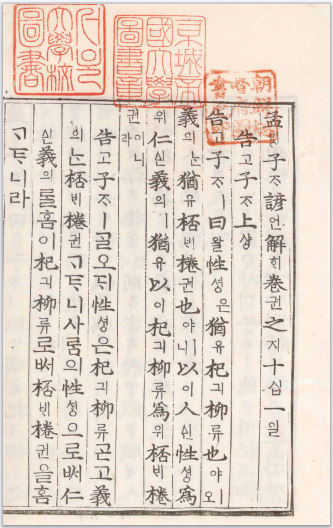 서울大學校圖書
京城帝國大學圖書章
孟ᄆᆡᆼ子ᄌᆞ諺언解ᄒᆡ卷권之지十십一일
告고子ᄌᆞ上샹
告고子ᄌᆞㅣ曰왈性셩은猶유杞긔柳류也야ㅣ오
義의ᄂᆞᆫ猶유桮ᄇᆡ棬권也야ㅣ니以이人ᅀᅵᆫ性셩爲
위仁ᅀᅵᆫ義의ㅣ猶유以이杞긔柳류爲위桮ᄇᆡ棬
권이니라
告고子ᄌᆞㅣᄀᆞᆯ오ᄃᆡ性셩은杞긔柳류ᄀᆞᆮ고義
의ᄂᆞᆫ桮ᄇᆡ棬권ᄀᆞᄐᆞ니사ᄅᆞᆷ의性셩으로ᄡᅥ仁
ᅀᅵᆫ義의ᄅᆞᆯ홈이杞긔柳류로ᄡᅥ桮ᄇᆡ棬권을홈
ᄀᆞᄐᆞ니라